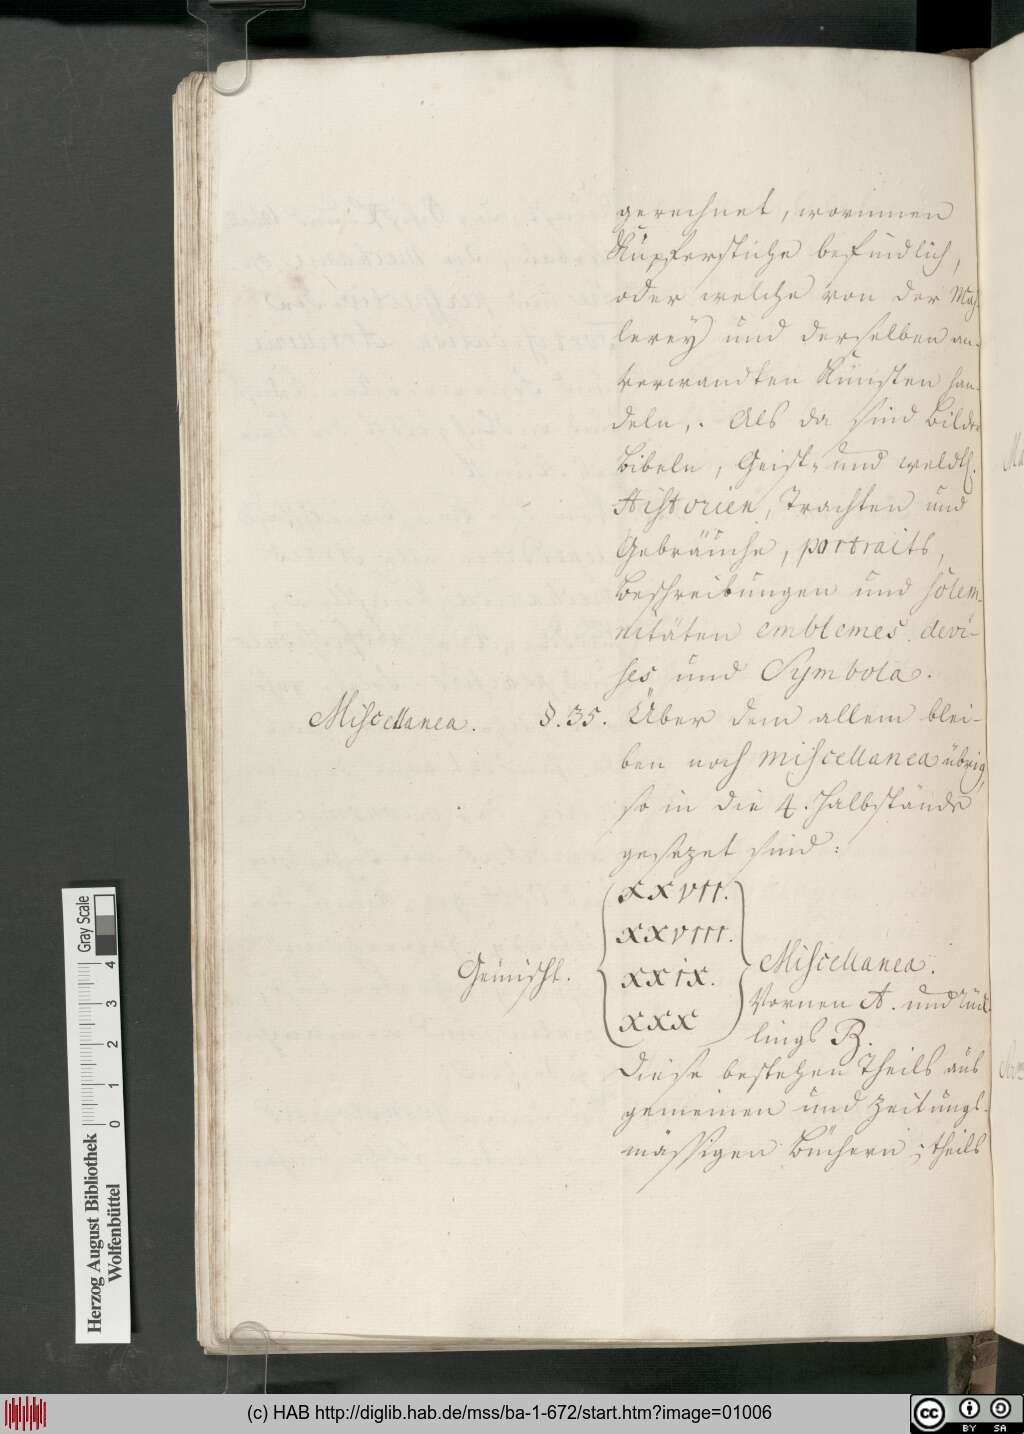 gerechnet, worinnen
Kupferstiche befindlich,
oder welche von der Mah-
lerey und derselben an-
verwandten Künsten han-
deln,. Als da sind Bilder
Bibeln, Geist- und weldl.
Historien, Trachten und
Gebräuche, portraits,
Beschreibungen und solem-
nitäten emblemes devi-
ses und Symbola.
Miscellanea. §. 35. Über dem allem blei-
ben noch miscellanea übrig,
so in die 4. Halbstände
gesezet sind:
XXVII.
XXVIII.
Gemischt. XXIX. Miscellanea.
XXX Vornen A. und Rück-
lings B.
Diese bestehen Theils aus
gemeinen und zeitungs-
mässigen Büchern, theils
Gray Scale
0 1 2 3 4
Herzog August Bibliothek
Wolfenbüttel
(c) HAB http://diglib.hab.de/mss/ba-1-672/start.htm?image=01006
cc BY SA